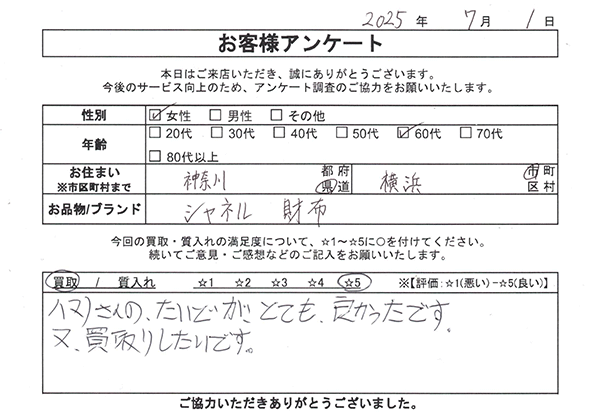 2025 年 7 月 1 日
お客様アンケート
本日はご来店いただき、誠にありがとうございます。
今後のサービス向上のため、アンケート調査のご協力をお願いいたします。
性別 ☑女性 □男性 □その他
年齢 □20代 □30代 □40代 □50代 ☑60代 □70代
□80代以上
お住まい 神奈川 都府県道 横浜 市町区村
※市区町村まで
お品物/ブランド シャネル 財布
今回の買取・質入れの満足度について、☆1～☆5に○を付けてください。
続いてご意見・ご感想などのご記入をお願いいたします。
買取 / 質入れ ☆1 ☆2 ☆3 ☆4 ☆5 ※【評価:☆1(悪い)-☆5(良い)】
ハマノさんの、たいどが、とても、良かったです。
又、買取りしたいです。
ご協力いただきありがとうございました。